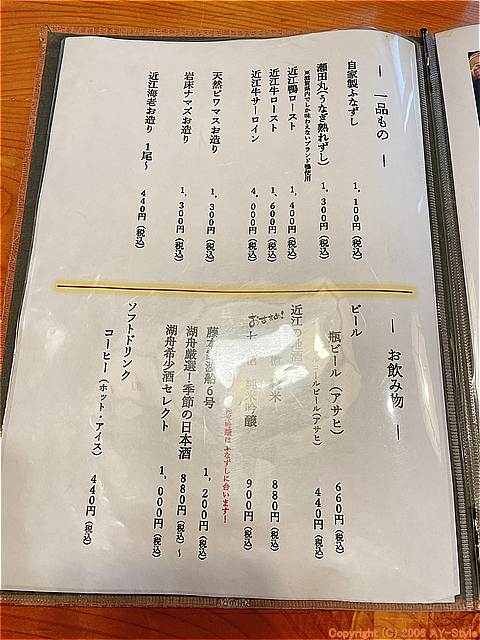 ― 一品もの ―
自家製ふなずし 1,100円(税込)
瀬田丸(うなぎ熟れずし) 1,300円(税込)
近江鴨ロースト 1,400円(税込)
近江牛ロースト 1,600円(税込)
近江牛サーロイン 4,000円(税込)
天然ビワマスお造り 1,300円(税込)
岩床ナマズお造り 1,300円(税込)
近江海老お造り 1尾~ 440円(税込)
― お飲み物 ―
ビール
瓶ビール(アサヒ) 660円(税込)
ールビール(アサヒ) 440円(税込)
近江の地酒
米 880円(税込)
おすすめ!
純米吟醸 900円(税込)
純米吟醸はふなずしに合います!
船6号 1,200円(税込)
湖舟厳選!季節の日本酒 880円(税込)~
湖舟希少酒セレクト 1,000円(税込)
ソフトドリンク
コーヒー(ホット・アイス) 440円(税込)
Copyright (C) 2006 AY-Style